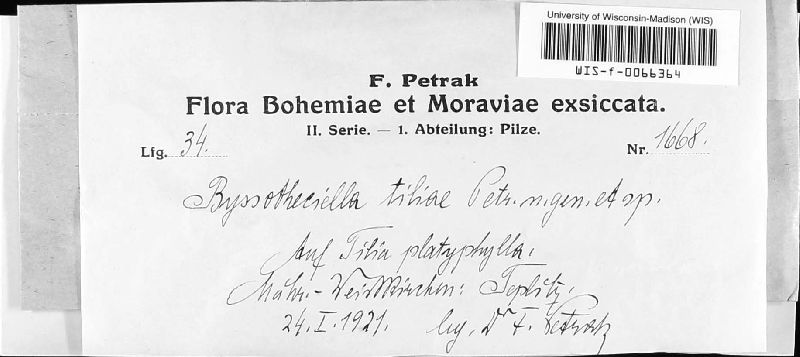 University of Wisconsin-Madison (WIS)
WIS-f-0066364
F. Petrak
Flora Bohemiae et Moraviae exsiccata.
II. Serie. — 1. Abteilung: Pilze.
Lfg. 34.
Nr. 1668.
Byssotheciella tiliae Petr. n. gen. et sp.
Auf Tilia platyphylla.
Mähr.-Weisskirchen: Teplitz.
24. I. 1921. leg. Dr F. Petrak